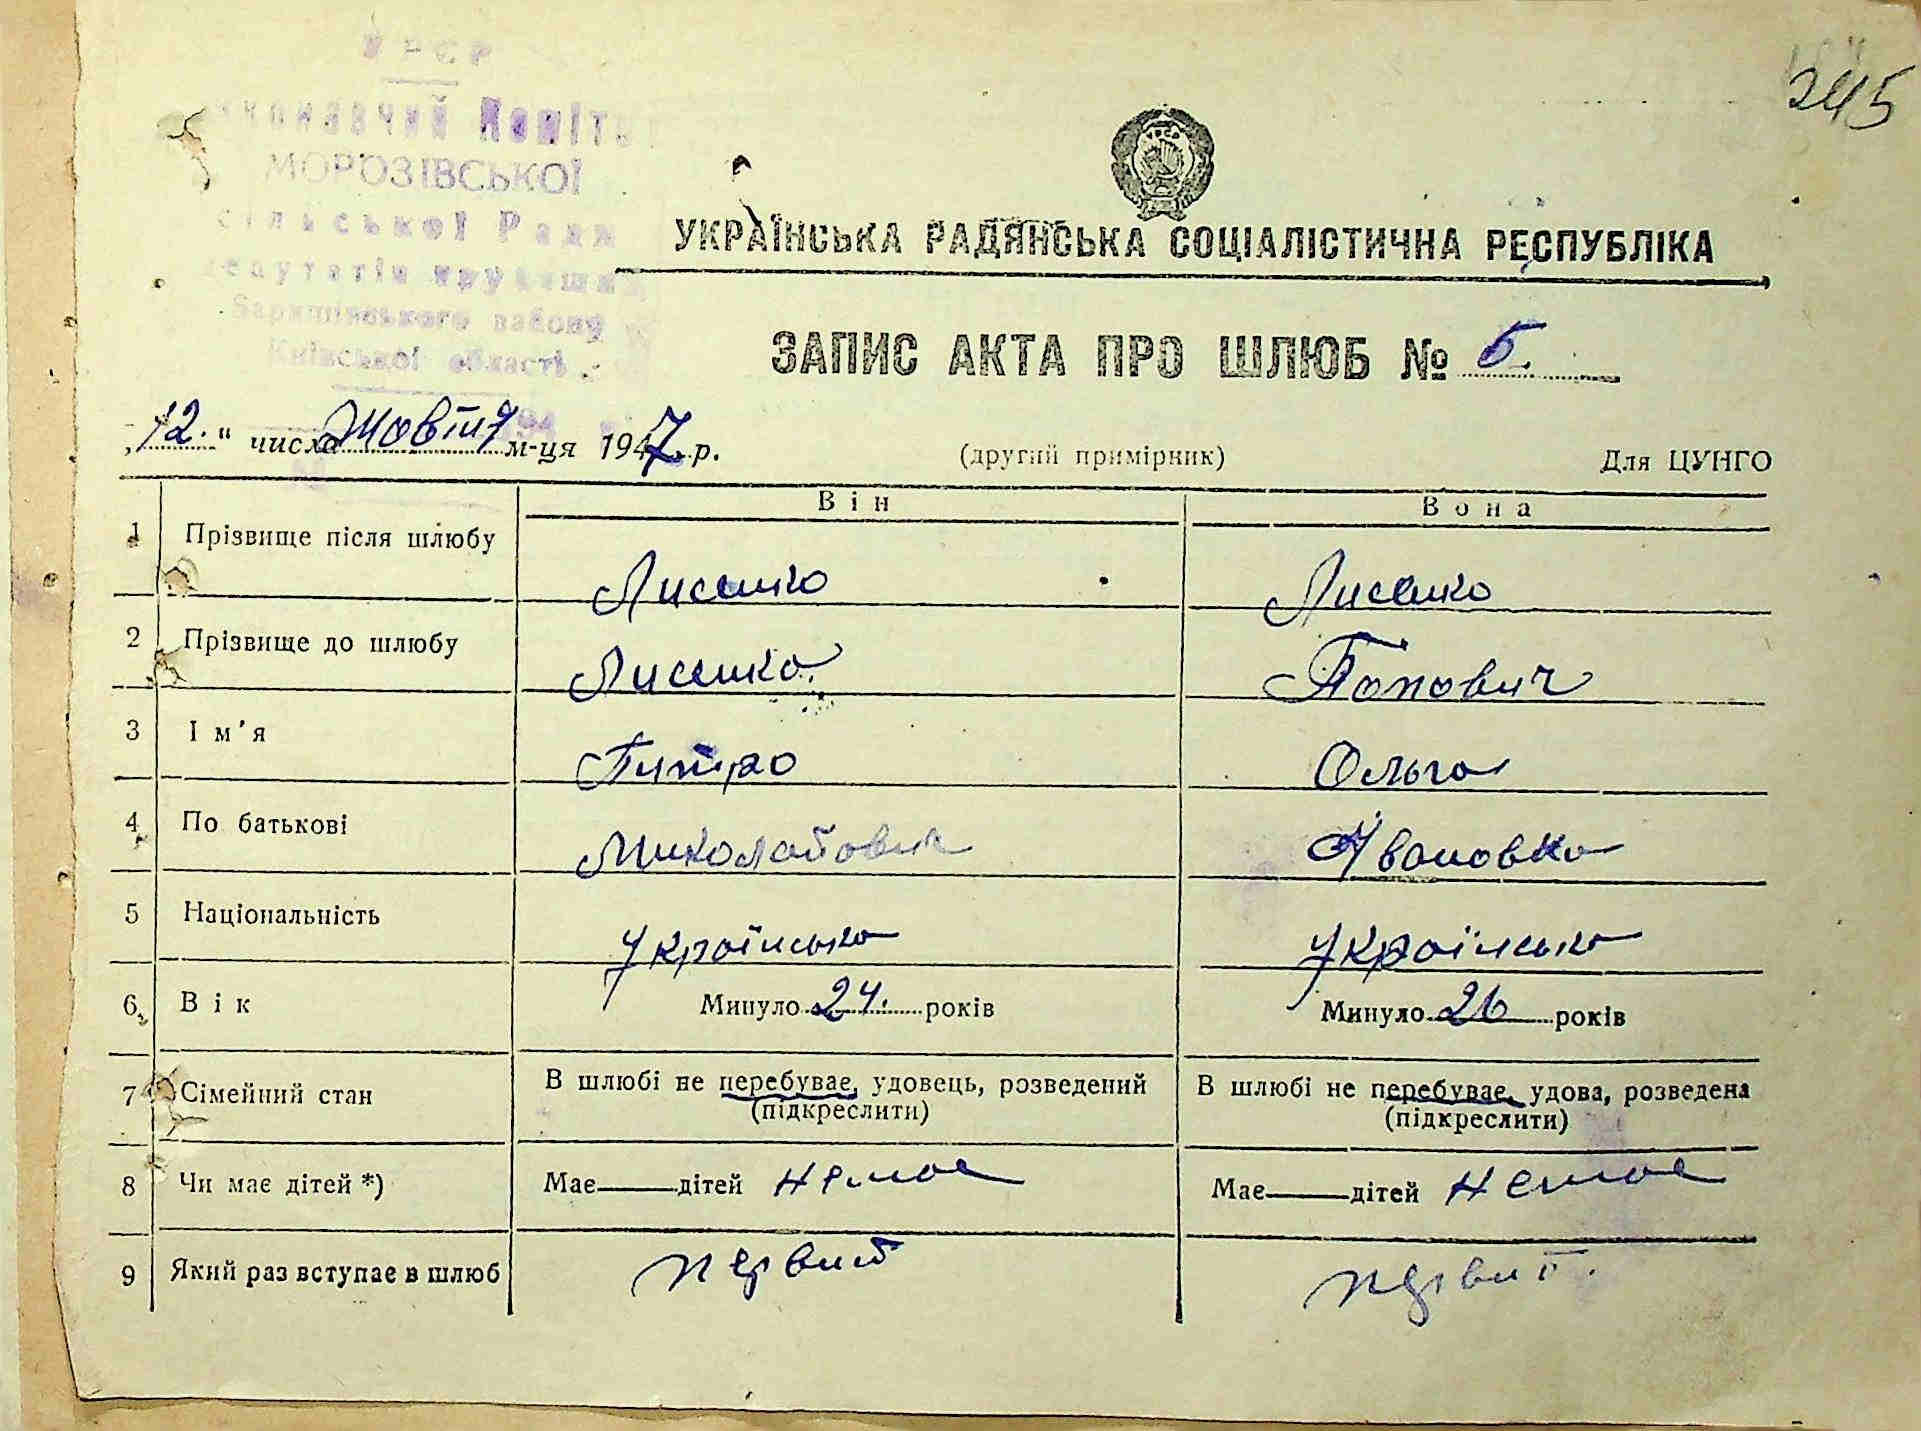 УРСР
Виконавчий Коміте
МОРОЗІВСЬКОЇ
сільської Ради
депутатів трудящих
Баришівського району
Київської області
245
УКРАЇНСЬКА РАДЯНСЬКА СОЦІАЛІСТИЧНА РЕСПУБЛІКА
ЗАПИС АКТА ПРО ШЛЮБ № 5.
„12." числа Жовтня м-ця 1947 р.
(другий примірник)
Для ЦУНГО
Він Вона
1 Прізвище після шлюбу Лисенко Лисенко
2 Прізвище до шлюбу Лисенко Попович
3 Ім'я Питро Ольга
4 По батькові Миколайович Івановна
5 Національність Українська Українська
6 Вік Минуло 24. років Минуло 26 років
7 Сімейний стан В шлюбі не перебуває, удовець, розведений В шлюбі не перебуває, удова, розведена
(підкреслити) (підкреслити)
8 Чи має дітей *) Має — дітей немає Має — дітей немає
9 Який раз вступає в шлюб первий первий.